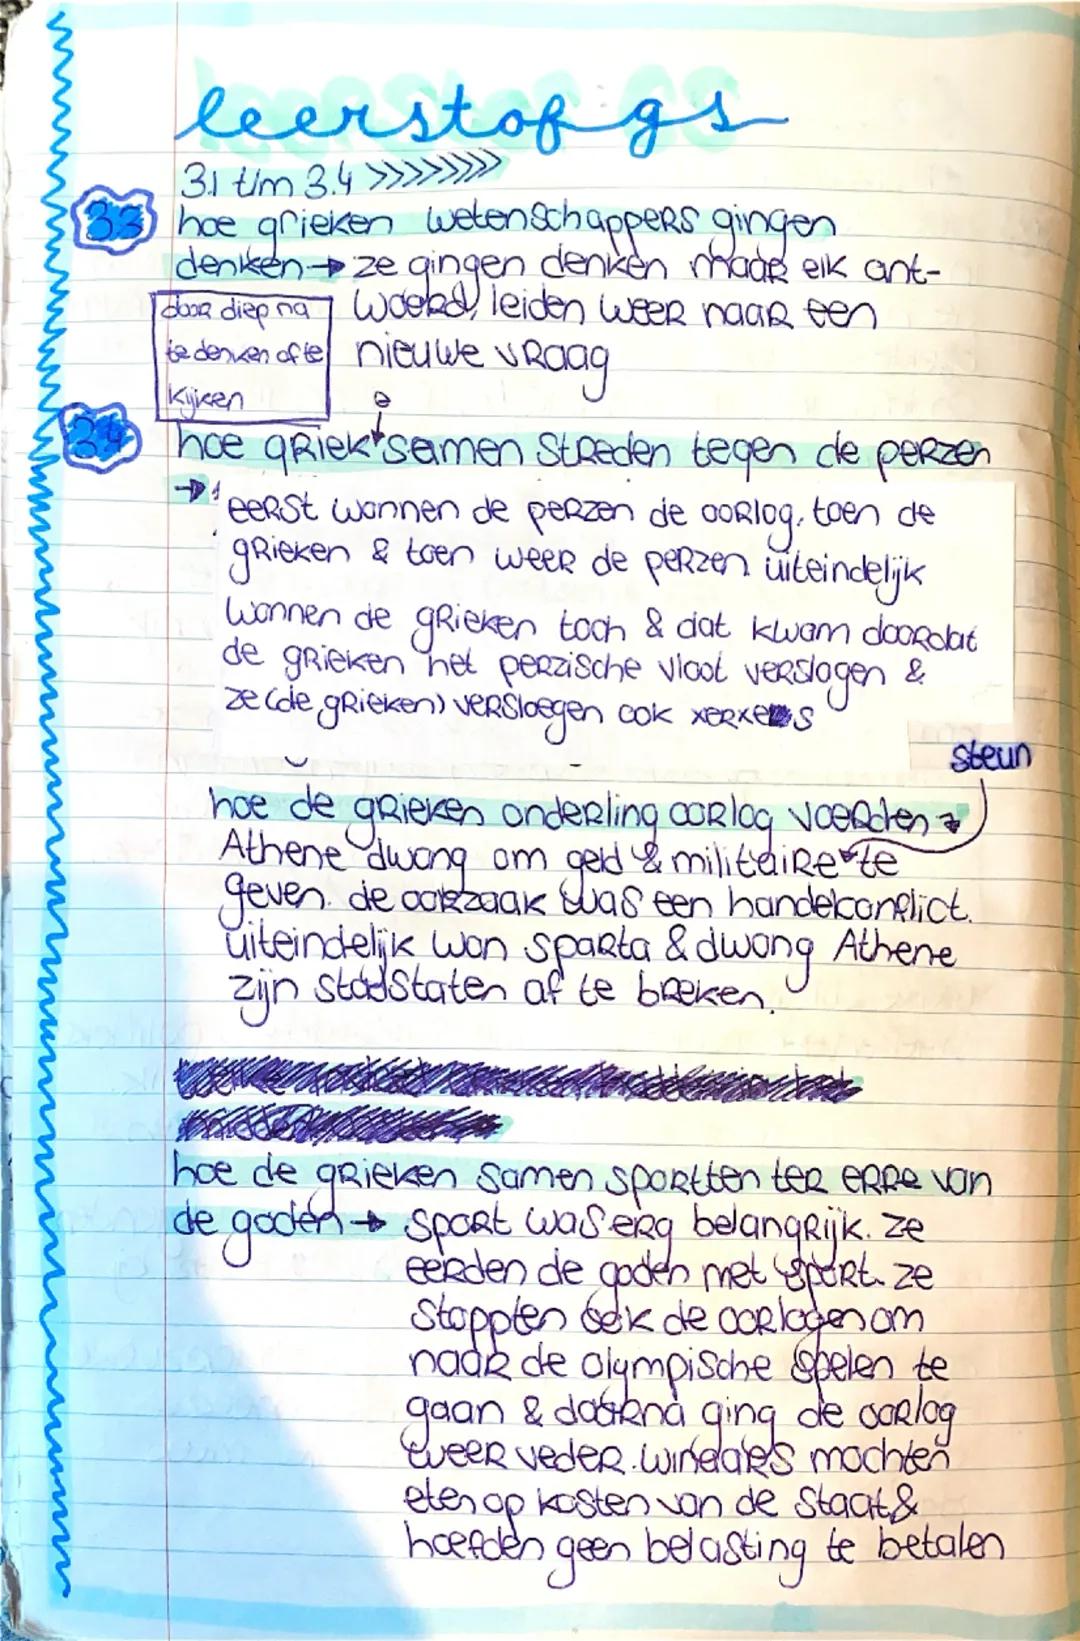 leerstof gs
3.1 t/m 3.4 >>>>>>>>
3.3 hoe grieken wetenschappers gingen
denken → ze gingen denken maar elk ant-
woord, leiden weer naar een
nieuwe vraag
door diep na
te denken of te
kijken
3.4 hoe griek e samen streden tegen de perzen
→ eerst wonnen de perzen de oorlog, toen de
grieken & toen weer de perzen uiteindelijk
wonnen de grieken toch & dat kwam doordat
de grieken het perzische vloot verslagen &
ze (de grieken) versloegen ook xerxes
steun
hoe de grieken onderling oorlog voerden →
Athene dwong om geld & militaire te
geven. de oorzaak was een handelconflict.
uiteindelijk won sparta & dwong Athene
zijn stadstaten af te breken.
hoe de grieken samen sportten ter erre van
de goden → sport was erg belangrijk. ze
eerden de goden met sport. ze
stoppten ook de oorlogen om
naar de olympische spelen te
gaan & daarna ging de oorlog
weer veder. winnaars mochten
eten op kosten van de staat &
hoefden geen belasting te betalen